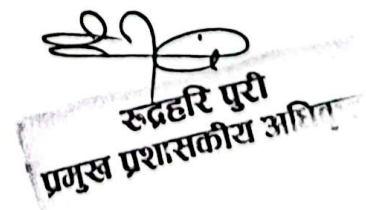 रुद्रहरि पुरी
प्रमुख प्रशासकीय